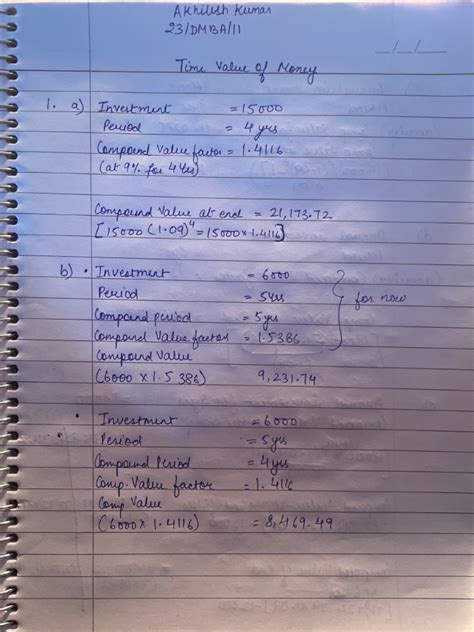 Akhilesh Kumar
23/DMBA/11
__/__/__
Time Value of Money
1. a) Investment = 15000
Period = 4 yrs
Compound Value factor = 1.4116
(at 9% for 4 Yrs)
Compound Value at end = 21,173.72
[15000 (1.09)⁴ = 15000 x 1.4116]
b) • Investment = 6000
Period = 5 yrs
for now
Compound period = 5 yrs
Compound Value factor = 1.5386
Compound Value
(6000 x 1.5386) 9,231.74
• Investment = 6000
• Period = 5 yrs
Compound Period = 4 yrs
Comp. Value factor = 1.4116
Comp Value
(6000 x 1.4116) = 8,469.49